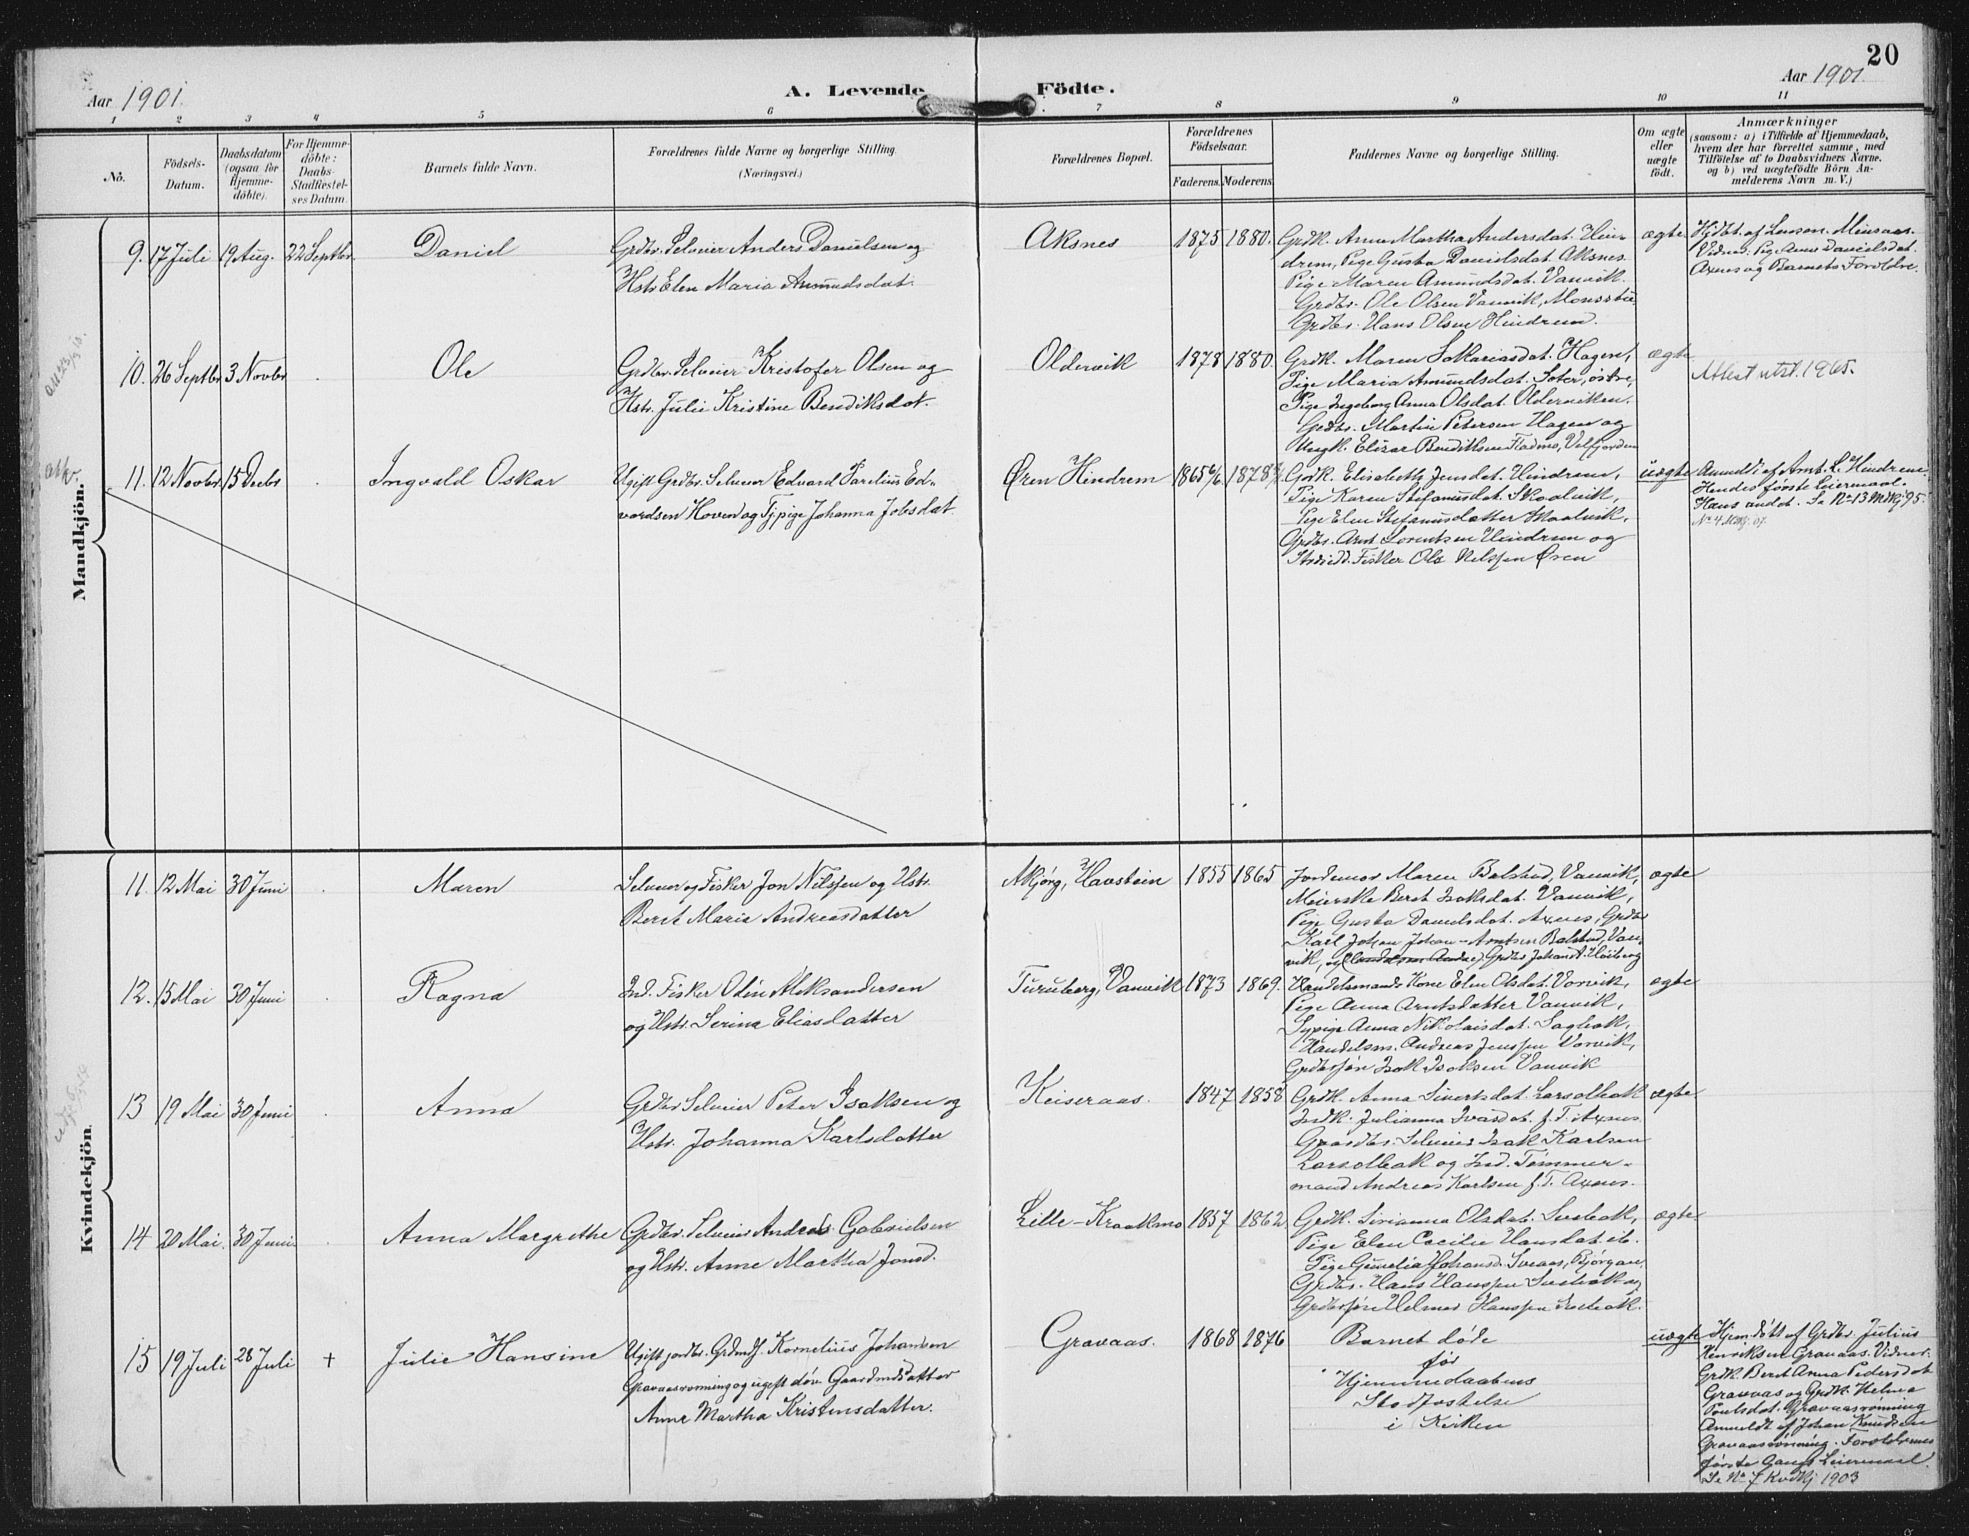 20
Aar 1901.
A. Levende Födte.
Aar 1901.
1 2 3 4 5 6 7 8 9 10 11
No.
Födsels-Datum.
Daabsdatum (ogsaa for Hjemme-döbte).
For Hjemme-döbte: Daabs-Stadfæstel-ses Datum.
Barnets fulde Navn.
Forældrenes fulde Navne og borgerlige Stilling.
(Næringsvei.)
Forældrenes Bopæl.
Forældrenes Födselsaar.
Faderens. Moderens
Faddernes Navne og borgerlige Stilling.
Om ægte eller uægte födt.
Anmærkninger
(saasom: a) i Tilfælde af Hjemmedaab,
hvem der har forrettet samme, med
Tilföielse af to Daabsvidners Navne.
og b) ved uægtefödte Börn An-
melderens Navn m. V.)
Mandkjön.
9. 17 Juli 19 Aug. 22 Septbr. Daniel
Grdbr. Selveier Anders Danielsen og
Hstr. Elen Maria Amundsdat.
Aksnes 1875 1880.
Grdk. Anne Martha Andersdat. Hin-
drem, Pige Gusta Danielsdat. Aksnes
Pige Maren Amundsdat. Vanvik.
Grdbr. Ole Olsen Vanvik, Monsstu
Grdbr. Hans Olsen Hindrem.
ægte
Hjdbt. af
Vidner: Pige Anne Danielsdat.
Axnes og Barnets Forældre.
10. 26 Septbr 3 Novbr . Ole
Grdbr. Selveier Kristofer Olsen og
Hstr. Julie Kristine Bendiksdat.
Oldervik 1878 1880.
Grdk. Maren Sakariasdat. Hagen,
Pige Maria Amundsdat. Soter, östre,
Pige Ingeborg Anna Olsdat. Olderviken.
Grdbr. Martin Petersen Hagen og
Ungk. Elizar Bendiksen Fladmo, Velfjorden
ægte
Attest utst. 1965.
11. 12 Novbr 15 Decbr . Ingvald Oskar
Ugift Grdbr. Selveier Edvard Parelius Ed-
vardsen Hoven og Tj.pige Johanna Jobsdat.
Øren Hindrem 1865 1878
Grdk. Elisabeth Jensdat. Hindrem,
Pige Karen Stefanusdat. Skaalvik,
Pige Elen Stefanusdatter Skaalvik,
Grdbr. Arnt Lorentsen Hindrem og
Strdsidd. Fisker Ole Nilssen Øren
uægte
Anmeldt af Arnt L. Hindrem.
Hendes første Leiermaal.
Hans andet. Se No 13 Mdkj 95
No 4 Mkj. 07.
Kvindekjön.
11. 12 Mai 30 Juni . Maren
Selveier og Fisker Jon Nilssen og Hstr.
Berit Maria Andreasdatter
Akjørg, Havstein 1855 1865
Jordemor Maren Balstad, Vanvik,
Meierske Berit Isaksdat. Vanvik,
Pige Gusta Danielsdat. Axnes, Grdbr
Karl Johan Johan-Arntsen Balstad, Van-
vik, og Grdbr Johan A. Høiberg
ægte
12. 15 Mai 30 Juni . Ragna
Ind. Fisker Odin Aleksandersen
og Hstr. Serine Eliasdatter
Turuberg, Vanvik 1873 1869.
Handelsmands Kone Elen Olsdat. Vanvik,
Pige Anna Arntsdatter Vanvik,
Sypige Anna Nikolaisdat. Sagbak,
Handelsm. Andreas Jenssen Vanvik,
Grdbrsøn Isak Isaksen Vanvik
ægte
13 19 Mai 30 Juni . Anna
Grdbr Selveier Peter Isaksen og
Hstr. Johanna Karlsdatter
Keiseraas. 1847 1858
Grdk. Anna Sivertsdat. Larsolbak
Indk. Julianna Ivarsdat. f. T. Axnes.
Gaardbr. Selveier Isak Karlsen
Larsolbak og Ind. Tømmer-
mand Andreas Karlsen f. T. Axnes.
ægte
14 20 Mai 30 Juni . Anna Margrethe
Grdbr. Selveier Andreas Gabrielsen
og Hstr. Anne Martha Jonsd.
Lille-Kraakmo 1857 1862
Grdk. Sirianna Olsdat. Svebak,
Pige Elen Cecilie Hansdat. ib.
Pige Gunelia Johansd. Sveaas, Bjørgan,
Grdbr. Hans Hanssen Svebak og
Grdbrsøn Helmer Hanssen Svebak.
ægte
15 19 Juli 28 Juli + Julie Hansine
Ugift jordbr. Grdmd. Kornelius Johansen
Gravaasrønning og ugift døv Gaardmdsdatter
Anne Martha Kristensdatter.
Gravaas. 1868 1876
Barnet døde
før
Hjemmedaabens
Stadfæstelse
i Kirken
uægte
Hjemdöbt af Grdbr. Julius
Henriksen Gravaas. Vidner:
Grdk. Berit Anna Pedersdat
Gravaas og Grdk. Helma
Poulsdat. Gravaasrønning
Anmeldt af Johan Knudsen
Gravaasrönning. Forældrenes
første Gangs Leiermaal.
Se No 7 Kvdkj 1903